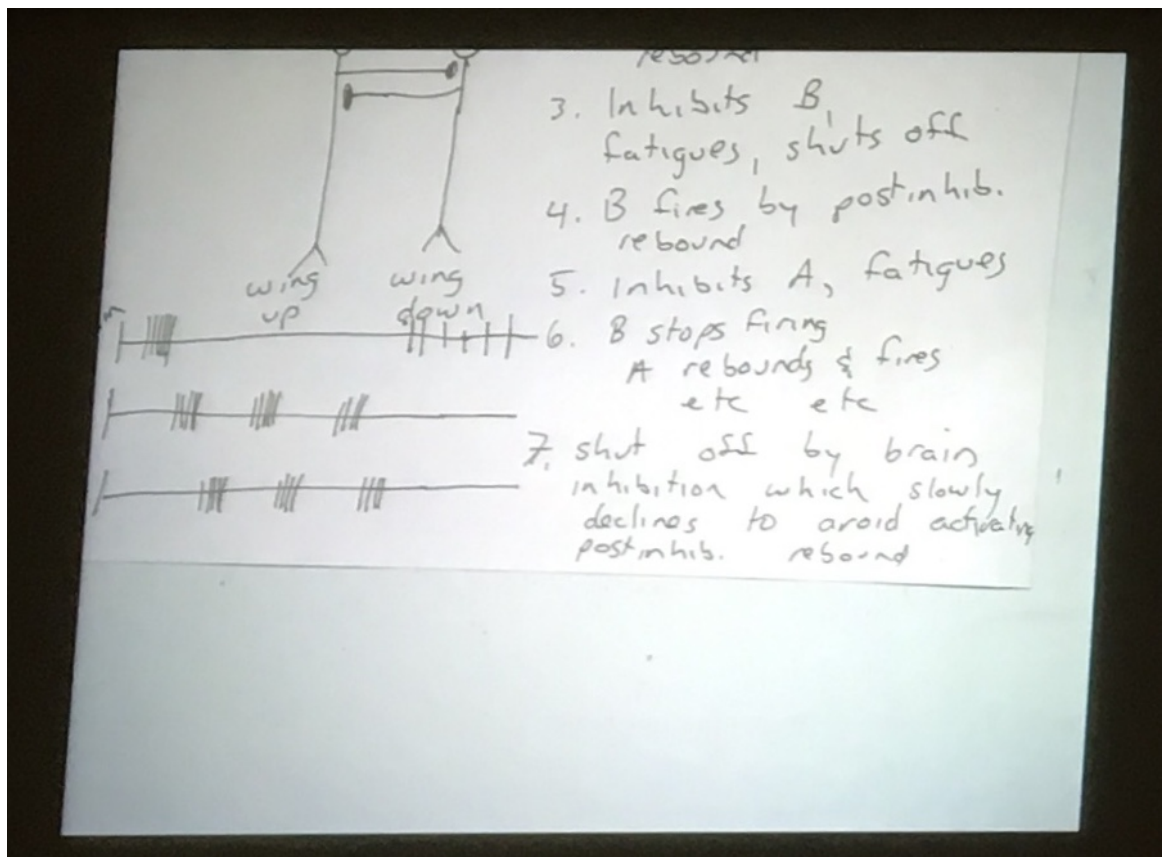 rebound
3. Inhibits B,
fatigues, shuts off
4. B fires by postinhib.
rebound
5. Inhibits A, fatigues
6. B stops firing
A rebounds & fires
etc etc
7. shut off by brain
inhibition which slowly
declines to avoid activating
postinhib. rebound
wing
up
wing
down